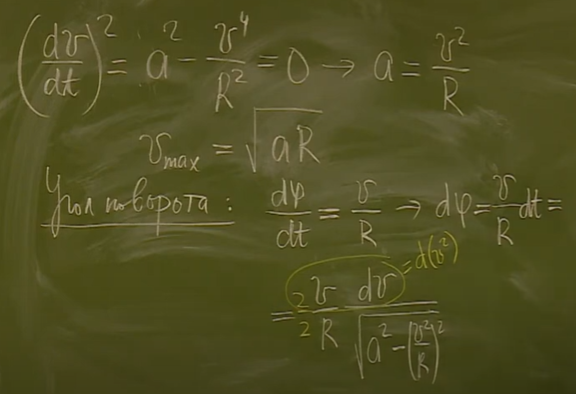 (dv/dt)² = a² - v⁴/R² = 0 → a = v²/R
v_max = √(aR)
Угол поворота: dφ/dt = v/R → dφ = v/R dt =
= 2v dv / (2R √(a² - (v²/R)²)) = d(v²)